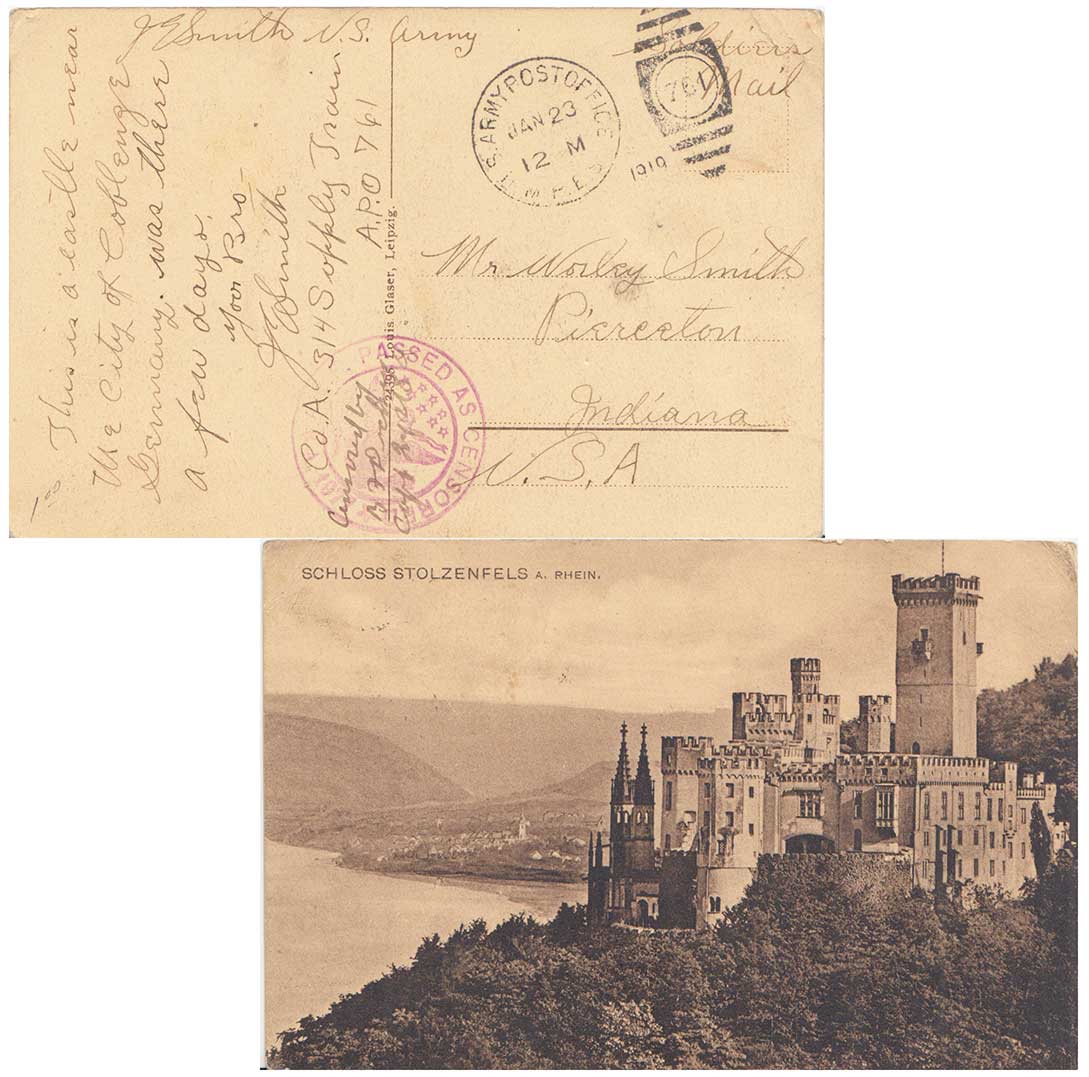 J E Smith U.S. Army
Soldiers
Mail
This is a castle near
the City of Coblenge
Germany. was there
a few days.
Your Bro-
J E Smith
Co A. 314 Supply Train
A.P.O 761
U.S. ARMY POST OFFICE
JAN 23
12 M
M.P.E.S.
761
1919
Mr Worley Smith
Pierceton
Indiana
U.S.A
24395 Louis Glaser, Leipzig.
PASSED AS CENSORED
Censored by
1 00
SCHLOSS STOLZENFELS A. RHEIN.